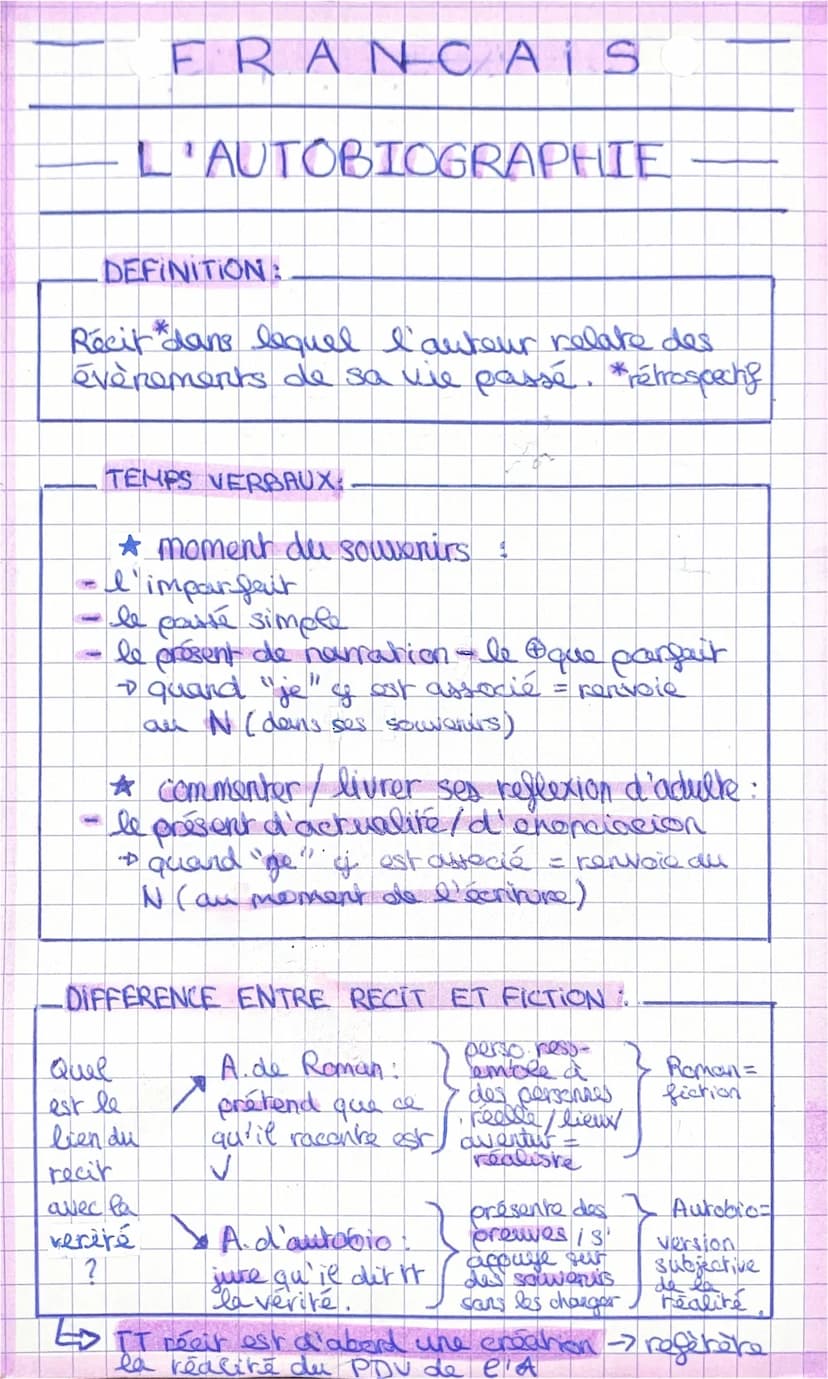 FRANCAiS
L'AUTOBIOGRAPHIE
DEFiNiTiON :
Récit* dans lequel l'auteur relate des
évènements de sa vie passé. *rétrospectif
TEMPS VERBAUX :
★ moment du souvenirs :
- l'imparfait
- le passé simple
- le présent de narration - le ⊕ que parfait
→ quand "je" y est associé = renvoie
au N (dans ses souvenirs)
★ commenter / livrer ses reflexion d'adulte :
- le présent d'actualité / d'enonciacion
→ quand "je" y est associé = renvoie au
N (au moment de l'écriture)
DIFFERENCE ENTRE RECIT ET FiCTiON :
Quel
est le
lien du
recit
avec la
verité
?
↗ A. de Roman :
prétend que ce
qu'il raconte est
✓
perso. ress-
emble à
des personnes
réelle / lieux /
aventur =
réaliste
Roman =
fiction
↘ A. d'autobio :
jure qu'il dit tt
la vérité.
présente des
preuves / s'
appuye sur
des souvenirs
sans les changer
Autobio =
version
subjective
de la
réalité.
↳ TT récit est d'abord une création → refètère
la réalité du PDV de l'A